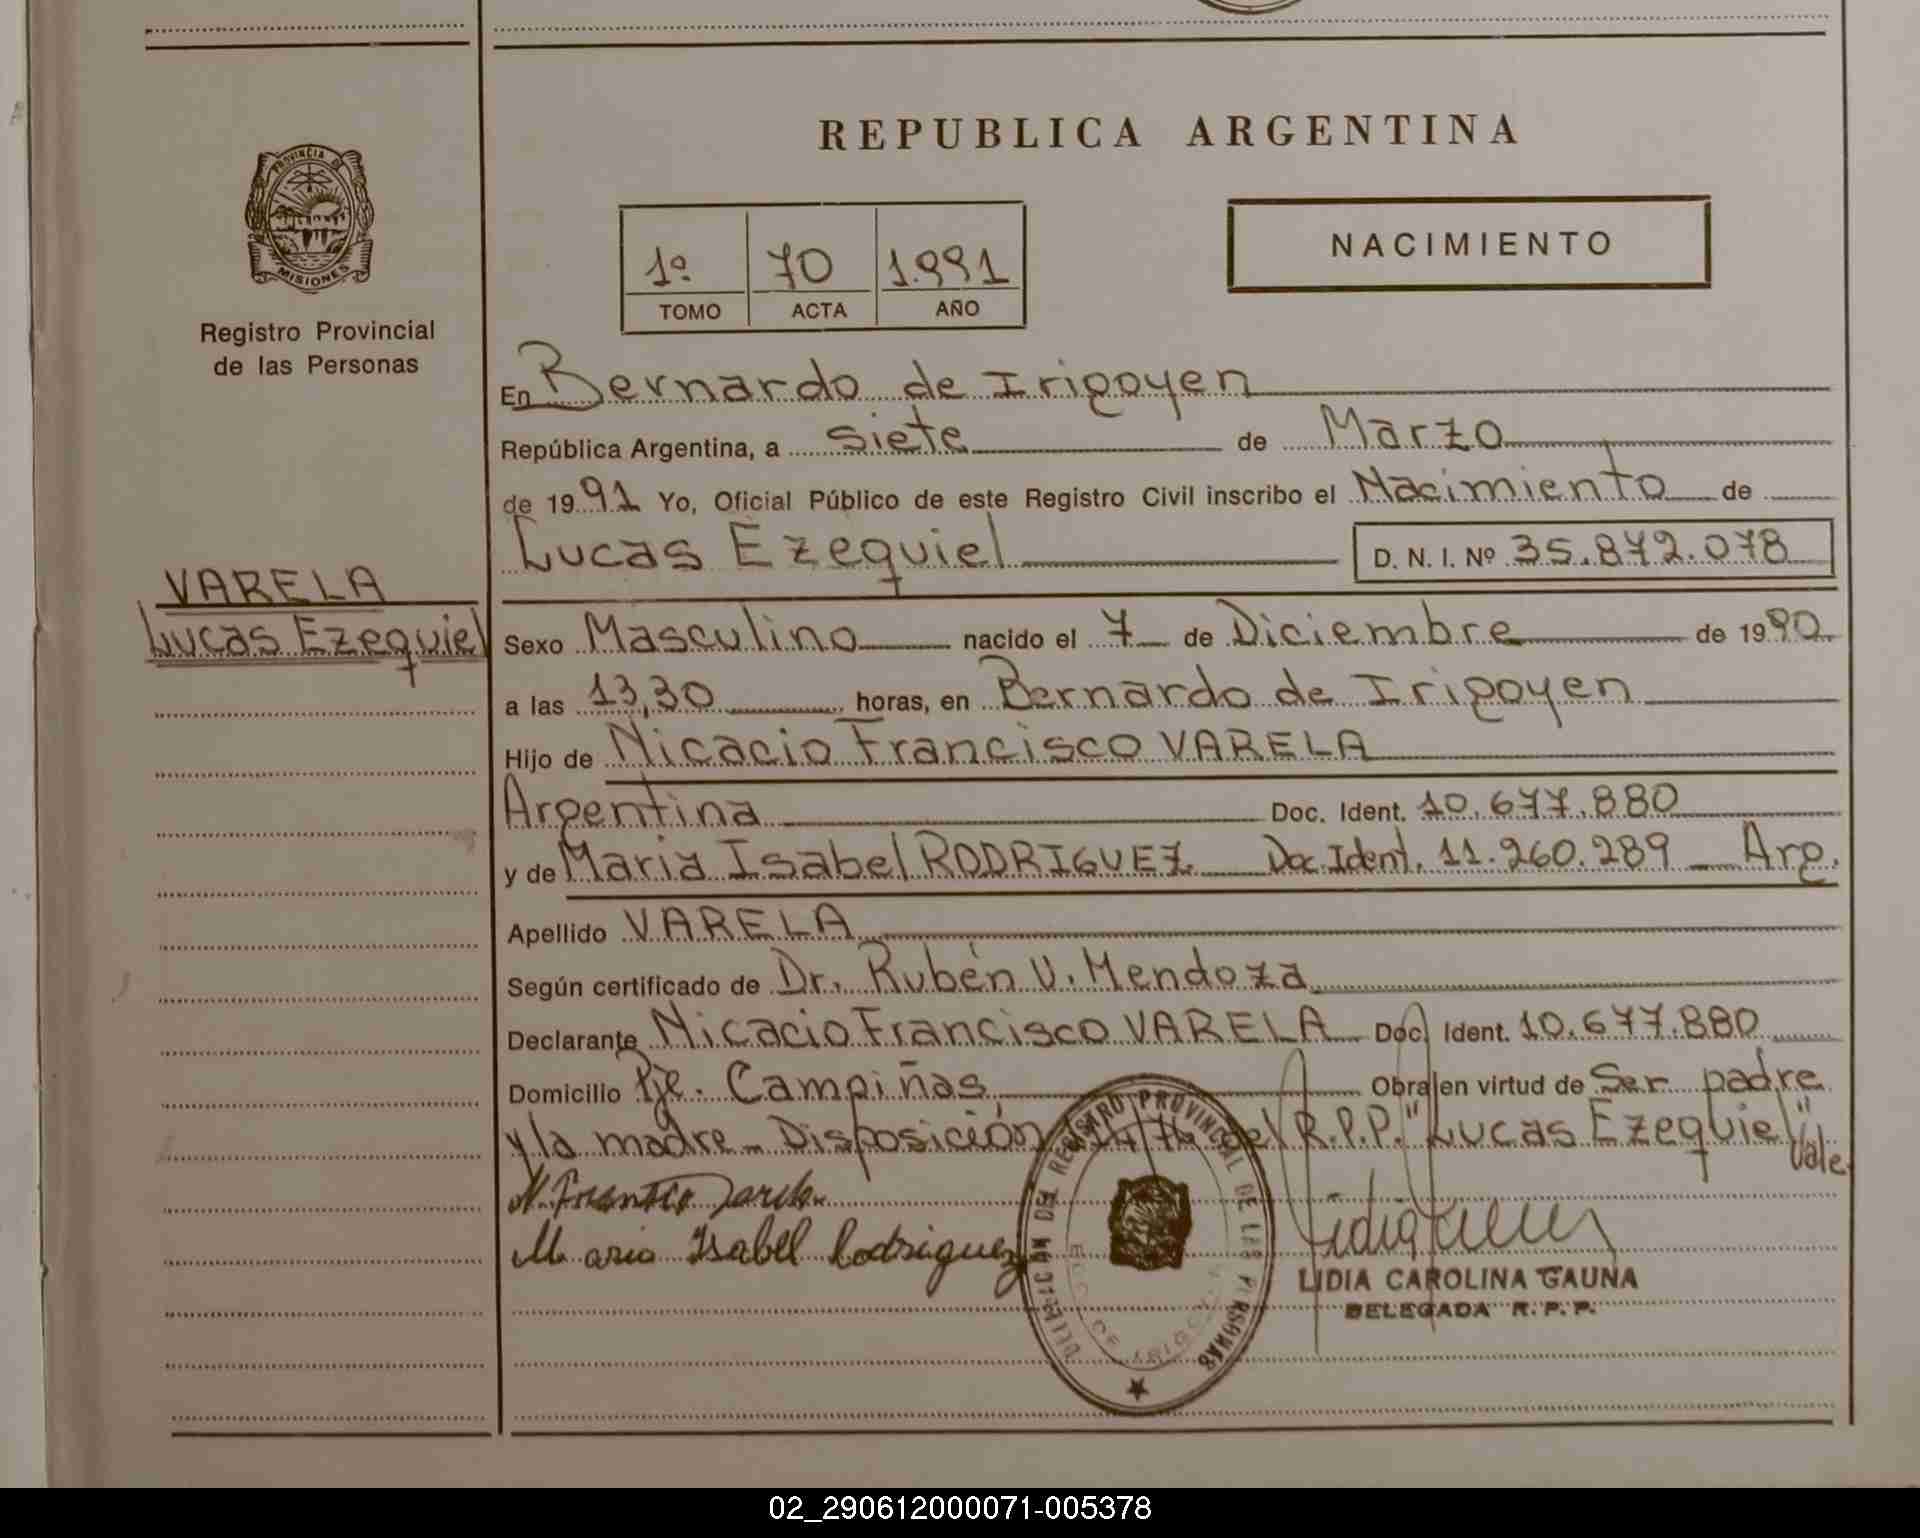 REPUBLICA ARGENTINA
PROVINCIA DE
MISIONES
Registro Provincial
de las Personas
NACIMIENTO
1º 70 1.991
TOMO ACTA AÑO
En Bernardo de Irigoyen
República Argentina, a siete de Marzo
de 1991 Yo, Oficial Público de este Registro Civil inscribo el Nacimiento de
Lucas Ezequiel D. N. I. Nº 35.872.078
VARELA
Lucas Ezequiel
Sexo Masculino nacido el 7 de Diciembre de 1990
a las 13,30 horas, en Bernardo de Irigoyen
Hijo de Nicacio Francisco VARELA
Argentina Doc. Ident. 10.677.880
y de Maria Isabel RODRIGUEZ Doc. Ident. 11.260.289 Arg.
Apellido VARELA
Según certificado de Dr. Rubén U. Mendoza
Declarante Nicacio Francisco VARELA Doc. Ident. 10.677.880
Domicilio Pje. Campiñas Obra en virtud de Ser padre
y la madre Disposición del R.P.P. "Lucas Ezequiel" Vale
Maria Isabel Rodriguez
DEL REGISTRO PROVINCIAL DE LAS PERSONAS
LIDIA CAROLINA GAUNA
DELEGADA R. P. P.
02_290612000071-005378